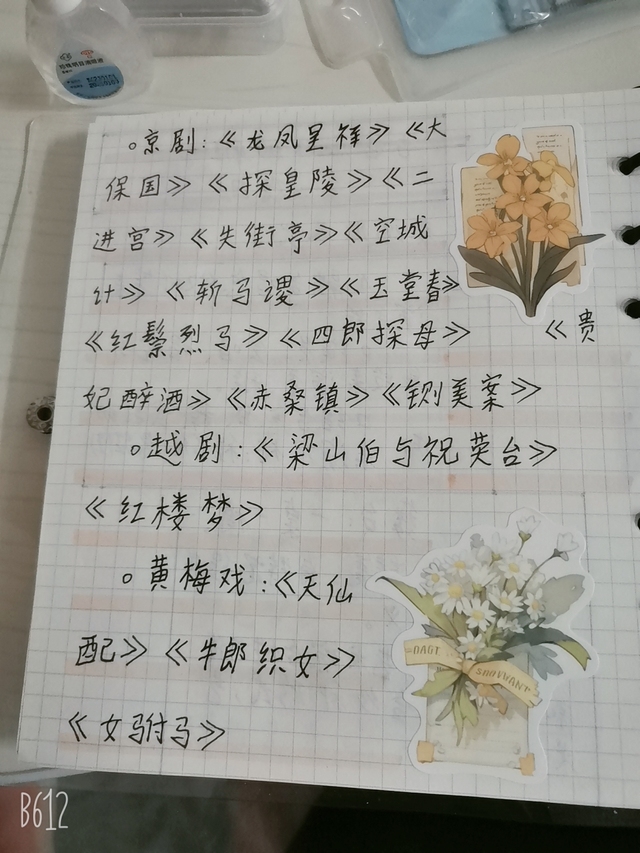 京剧:《龙凤呈祥》《大
保国》《探皇陵》《二
进宫》《失街亭》《空城
计》《斩马谡》《玉堂春》
《红鬃烈马》《四郎探母》 《贵
妃醉酒》《赤桑镇》《铡美案》
越剧:《梁山伯与祝英台》
《红楼梦》
黄梅戏:《天仙
配》《牛郎织女》
《女驸马》
DAGT
B612